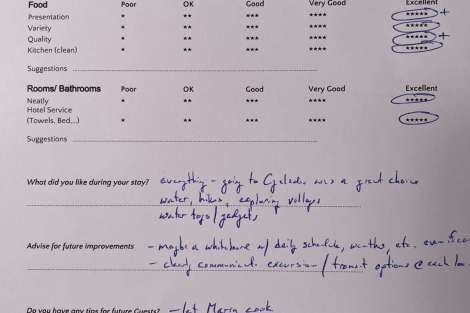 Food Poor OK Good Very Good Excellent
Presentation * ** *** **** ***** +
Variety * ** *** **** *****
Quality * ** *** **** ***** +
Kitchen (clean) * ** *** **** *****
Suggestions
Rooms/ Bathrooms Poor OK Good Very Good Excellent
Neatly * ** *** **** *****
Hotel Service
(Towels, Bed...) * ** *** **** *****
Suggestions
What did you like during your stay? everything - going to Cyclades was a great choice
water, hikes, exploring villages
water toys / gadgets
Advise for future improvements - maybe a whiteboard w/ daily schedule, weather, etc.
- clearly communicate excursion / transit options @ each
Do you have any tips for future Guests? - let Maria cook